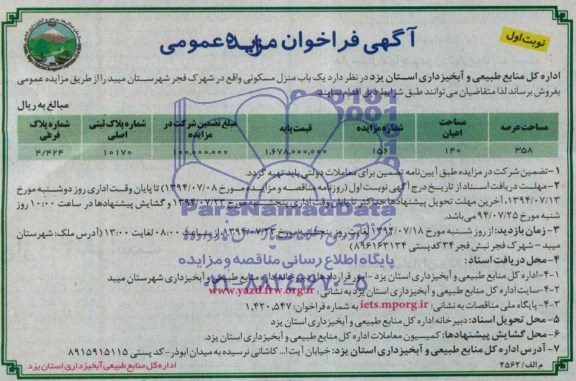 نوبت اول
آگهی فراخوان مزایده عمومی
اداره کل منابع طبیعی و آبخیزداری استان یزد در نظر دارد یک باب منزل مسکونی واقع در شهرک فجر شهرستان میبد را از طریق مزایده عمومی
بفروش برساند لذا متقاضیان می توانند طبق شرایط ذیل اقدام نمایند.
مبالغ به ریال
مساحت عرصه مساحت اعیان شماره مزایده قیمت پایه مبلغ تضمین شرکت در مزایده شماره پلاک ثبتی اصلی شماره پلاک فرعی
۳۵۸ ۱۴۰ ۱۵۶ ۱,۶۷۸,۰۰۰,۰۰۰ ۱۰۰,۰۰۰,۰۰۰ ۱۰۱۷۰ ۴/۴۲۴
۱-تضمین شرکت در مزایده طبق آیین نامه تضمین برای معاملات دولتی باید تهیه گردد.
۲-مهلت دریافت اسناد از تاریخ درج آگهی نوبت اول (روزنامه مناقصه و مزایده مورخ ۱۳۹۴/۰۷/۰۸) تا پایان وقت اداری روز دوشنبه مورخ
۱۳۹۴/۰۷/۱۳، آخرین مهلت تحویل پیشنهادها حداکثر تا پایان وقت اداری پنجشنبه مورخ ۱۳۹۴/۰۷/۲۳ و گشایش پیشنهادها در ساعت ۱۰:۰۰ روز
شنبه مورخ ۹۴/۰۷/۲۵ می باشد.
۳- زمان بازدید: از روز شنبه مورخ ۱۳۹۴/۰۷/۱۸ لغایت روز پنجشنبه مورخ ۱۳۹۴/۰۷/۲۳ از ساعت ۰۸:۰۰ لغایت ۱۳:۰۰ (آدرس ملک: شهرستان
میبد - شهرک فجر نبش فجر ۳۴ کدپستی ۸۹۶۱۶۳۱۳۴)
۴- محل دریافت اسناد:
۴-۱-اداره کل منابع طبیعی و آبخیزداری استان یزد - امور قراردادها و دبیرخانه اداره منابع طبیعی و آبخیزداری شهرستان میبد
۴-۲-سایت اداره کل منابع طبیعی و آبخیزداری استان یزد به نشانی: www.yazd.frw.org.ir
۴-۳- پایگاه ملی مناقصات به نشانی iets.mporg.ir به شماره فراخوان: ۱,۴۲۰,۵۴۷
۵-محل تحویل اسناد: دبیرخانه اداره کل منابع طبیعی و آبخیزداری استان یزد
۶-محل گشایش پیشنهادها: کمیسیون معاملات اداره کل منابع طبیعی و آبخیزداری استان یزد.
۷-آدرس اداره کل منابع طبیعی و آبخیزداری استان یزد: خیابان آیت ا... کاشانی نرسیده به میدان ابوذر - کد پستی ۸۹۱۵۹۱۵۱۱۵
م الف/ ۲۵۶۲
اداره کل منابع طبیعی و آبخیزداری استان یزد
ParsNamadData
پایگاه اطلاع رسانی مناقصه و مزایده
۰۲۱-۸۸۳۴۹۶۷۰-۵